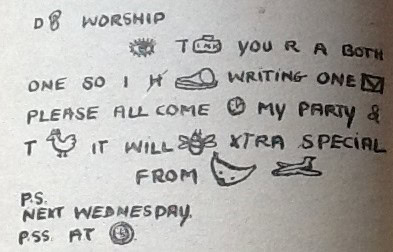 D8 WORSHIP
T INK YOU R A BOTH
ONE SO I H WRITING ONE
PLEASE ALL COME MY PARTY &
T IT WILL XTRA SPECIAL
FROM
P.S.
NEXT WEDNESDAY.
P.SS. AT